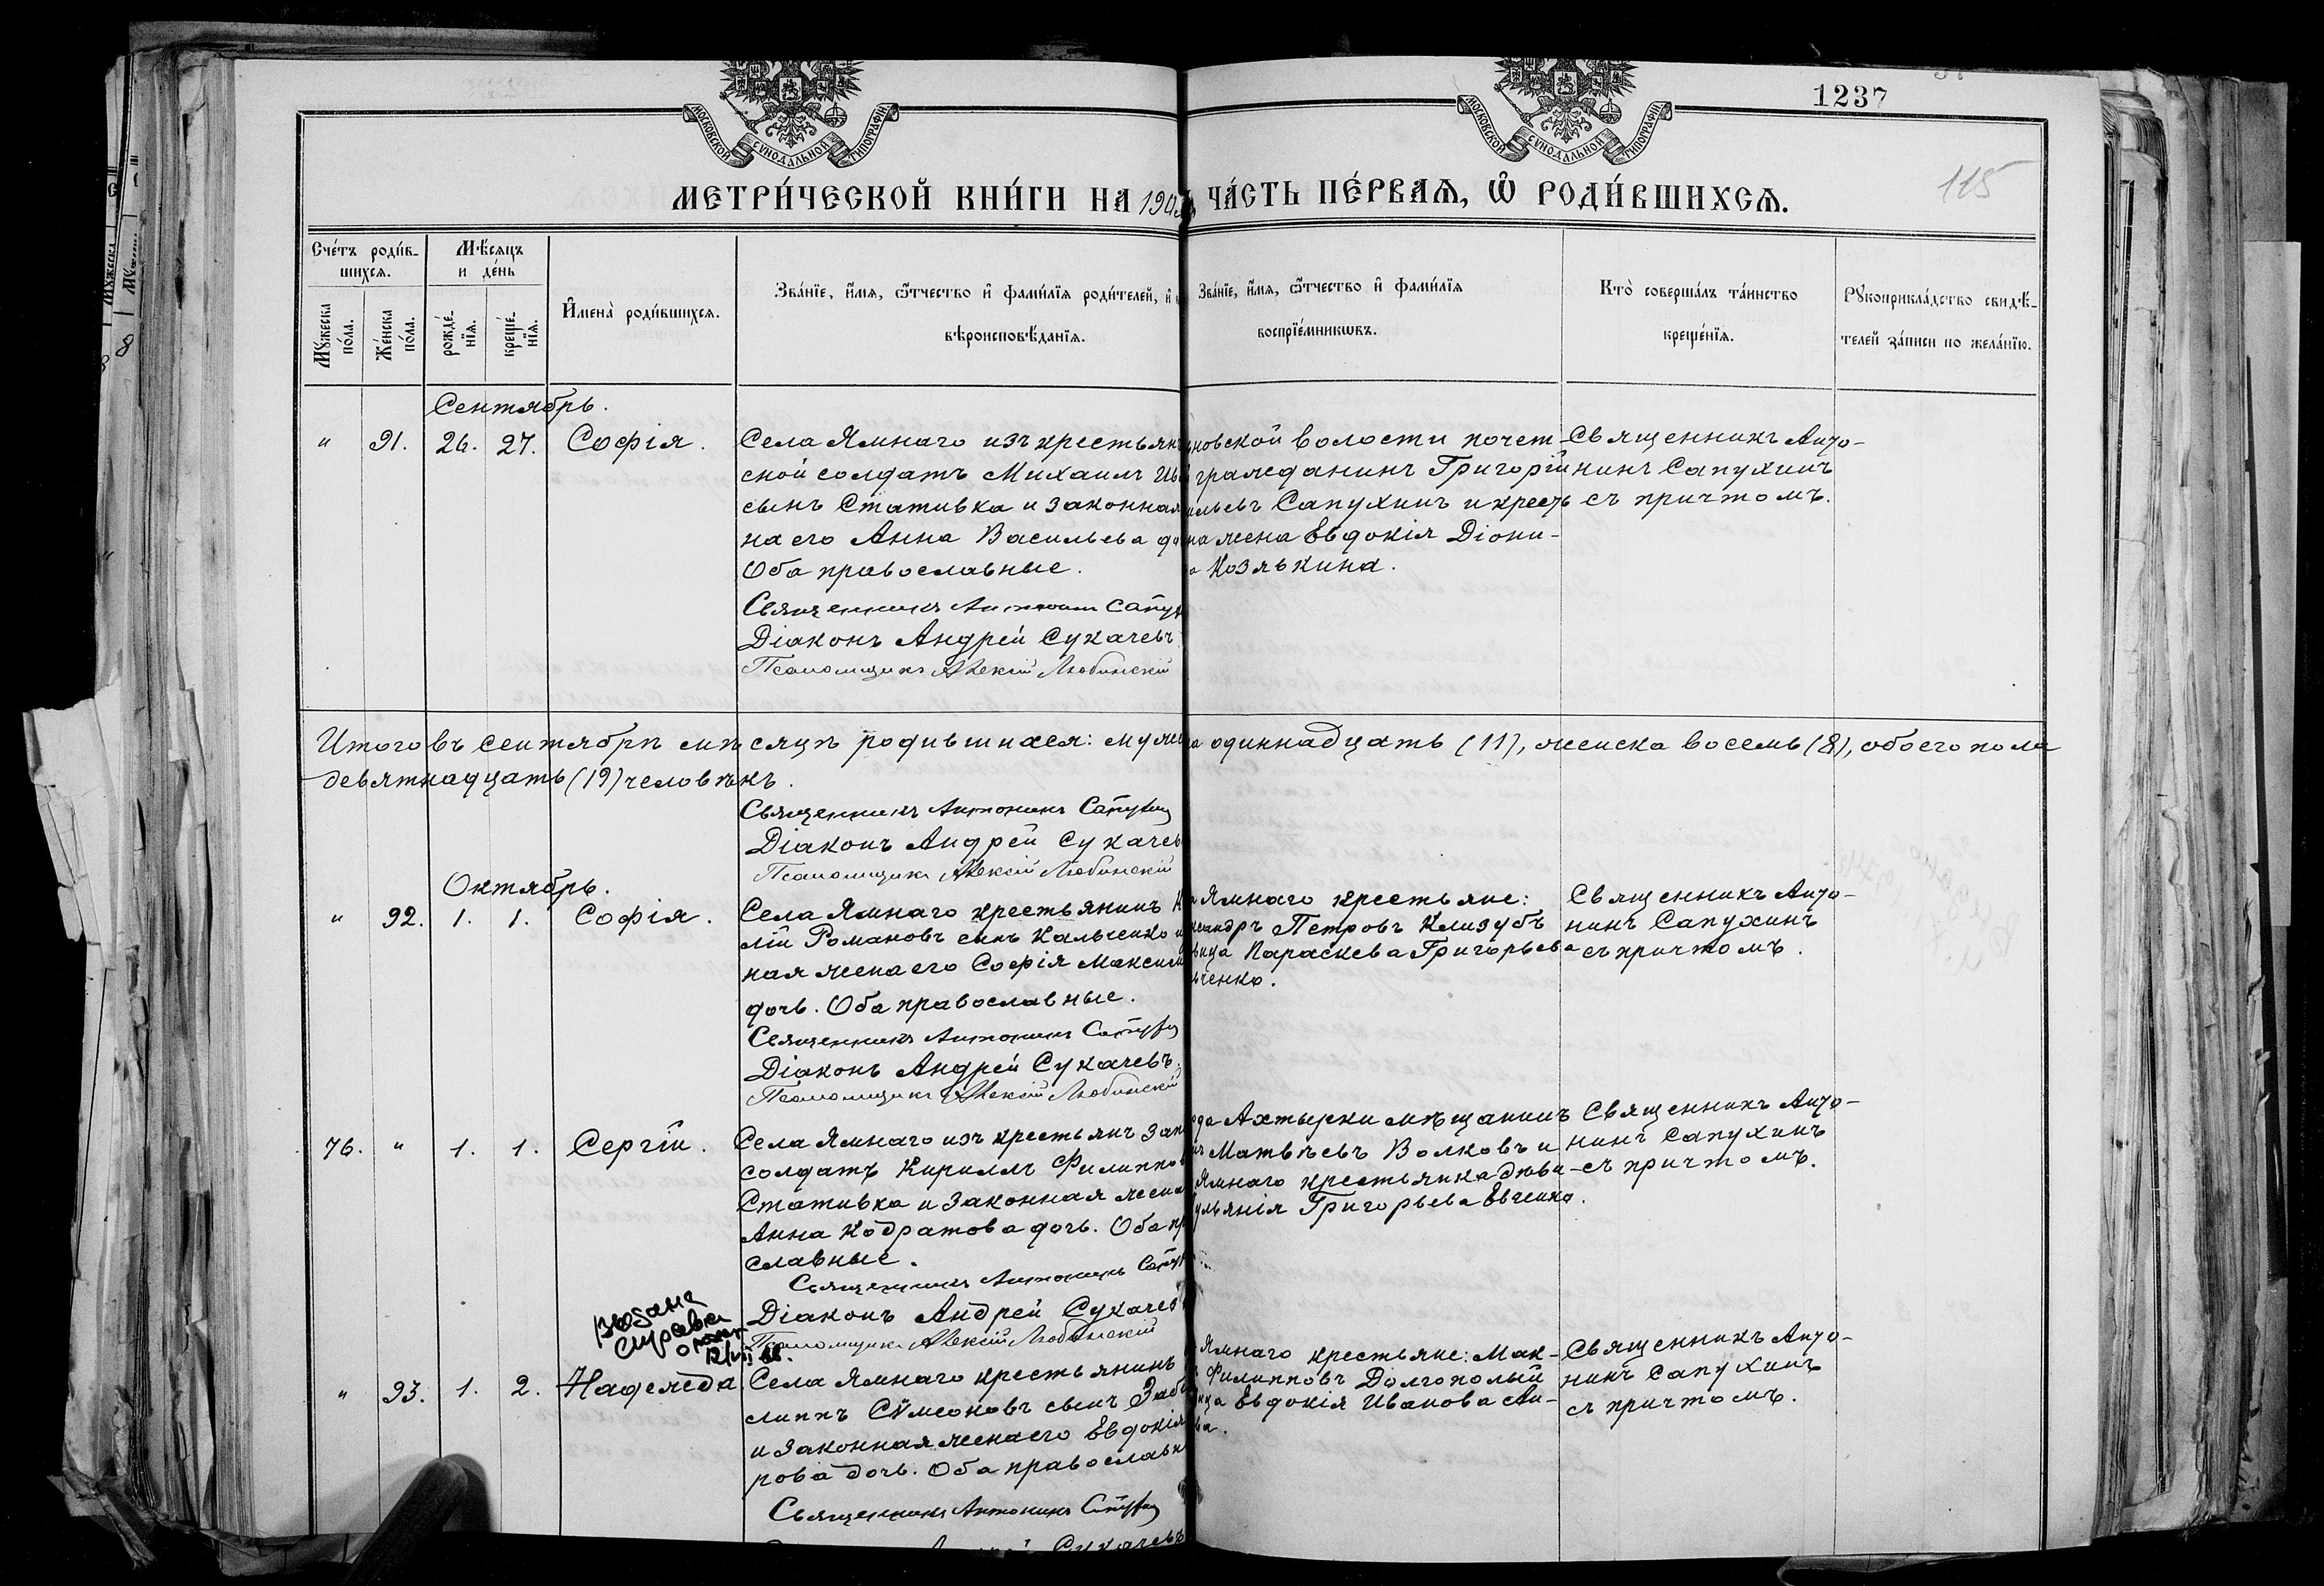 1237
115
МОСКОВСКОЙ СѴНОДАЛЬНОЙ ТИПОГРАФІИ
МОСКОВСКОЙ СѴНОДАЛЬНОЙ ТИПОГРАФІИ
МЕТРИ́ЧЕСКОЙ КНИ́ГИ НА 190
ЧА́СТЬ ПЕ́РВАѦ, Ѿ РОДИ́ВШИХСѦ.
Сче́тъ роди́в-
шихсѧ.
Мꙋ́жеска
по́ла.
Же́нска
по́ла.
Мѣ́сѧцъ
и де́нь
рожде́-
нїѧ.
креще́-
нїѧ.
И҆мена̀ роди́вшихсѧ.
Зва́нїе, и҆́мѧ, ѻ҆́тчество и҆ фами́лїѧ роди́телей, и҆
вѣроисповѣ́данїѧ.
Зва́нїе, и҆́мѧ, ѻ҆́тчество и҆ фами́лїѧ
воспрїе́мникѡвъ.
Кто̀ соверша́лъ та́инство
креще́нїѧ.
Рꙋкоприкла́дство свидѣ́-
телей за́писи по жела́нїю.
Сентябрь.
" 91. 26. 27. Софія.
Села Ямнаго изъ крестьянъ
ской солдатъ Михаилъ Ив
сынъ Стативка и законная
на его Анна Васильева до
Оба православные.
Священникъ Антонин Сапух
Діаконъ Андрей Сукачевъ
Псаломщикъ Алексій Любинскій
новской волости почет-
гражданинъ Григорій
ильевъ Сапухинъ и кресть
на жена Евдокія Діони-
а Козякина.
Священникъ Анто-
нинъ Сапухинъ
съ причтомъ.
Итого въ сентябрѣ мѣсяцѣ родившихся: муже
ка одиннадцать (11), женска восемь (8), обоего пола
девятнадцать (19) человѣкъ.
Священникъ Антонинъ Сапухин
Діаконъ Андрей Сукачев
Псаломщикъ Алексій Любинскій
Октябрь.
" 92. 1. 1. Софія.
Села Ямнаго крестьянинъ К
лій Романовъ сынъ Кальченко и
ная жена его Софія Максим
дочь. Оба православные.
Священникъ Антонинъ Сапухин
Діаконъ Андрей Сукачевъ.
Псаломщикъ Алексій Любинскій
а Ямнаго крестьяне:
ксандръ Петровъ Клизубъ
вица Параскева Григорьева
ьченко.
Священникъ Анто-
нинъ Сапухинъ
съ причтомъ.
76. " 1. 1. Сергій.
Села Ямнаго изъ крестьянъ зап
солдатъ Кириллъ Филиппов
Стативка и законная жена
Анна Кодратова дочь. Оба пр
славные.
Священникъ Антонинъ Сапух
Діаконъ Андрей Сукачев
Псаломщикъ Алексій Любинскій
ода Ахтырки мѣщанинъ
Матвѣевъ Волковъ и
Ямнаго крестьянка дѣви-
ульянія Григорьева Евченко.
Священникъ Анто-
нинъ Сапухинъ
съ причтомъ.
видана
справка
" 93. 1. 2. Надежда
Села Ямнаго крестьянинъ
липпъ Сѵмеоновъ сынъ Заб
и законная жена его Евдокія
рова дочь. Оба православн
Священникъ Антонинъ Сапухин
Сукачевъ
Ямнаго крестьяне: Мак-
Филипповъ Долгополый
ица Евдокія Иванова Ан-
ва.
Священникъ Анто-
нинъ Сапухинъ
съ причтомъ.